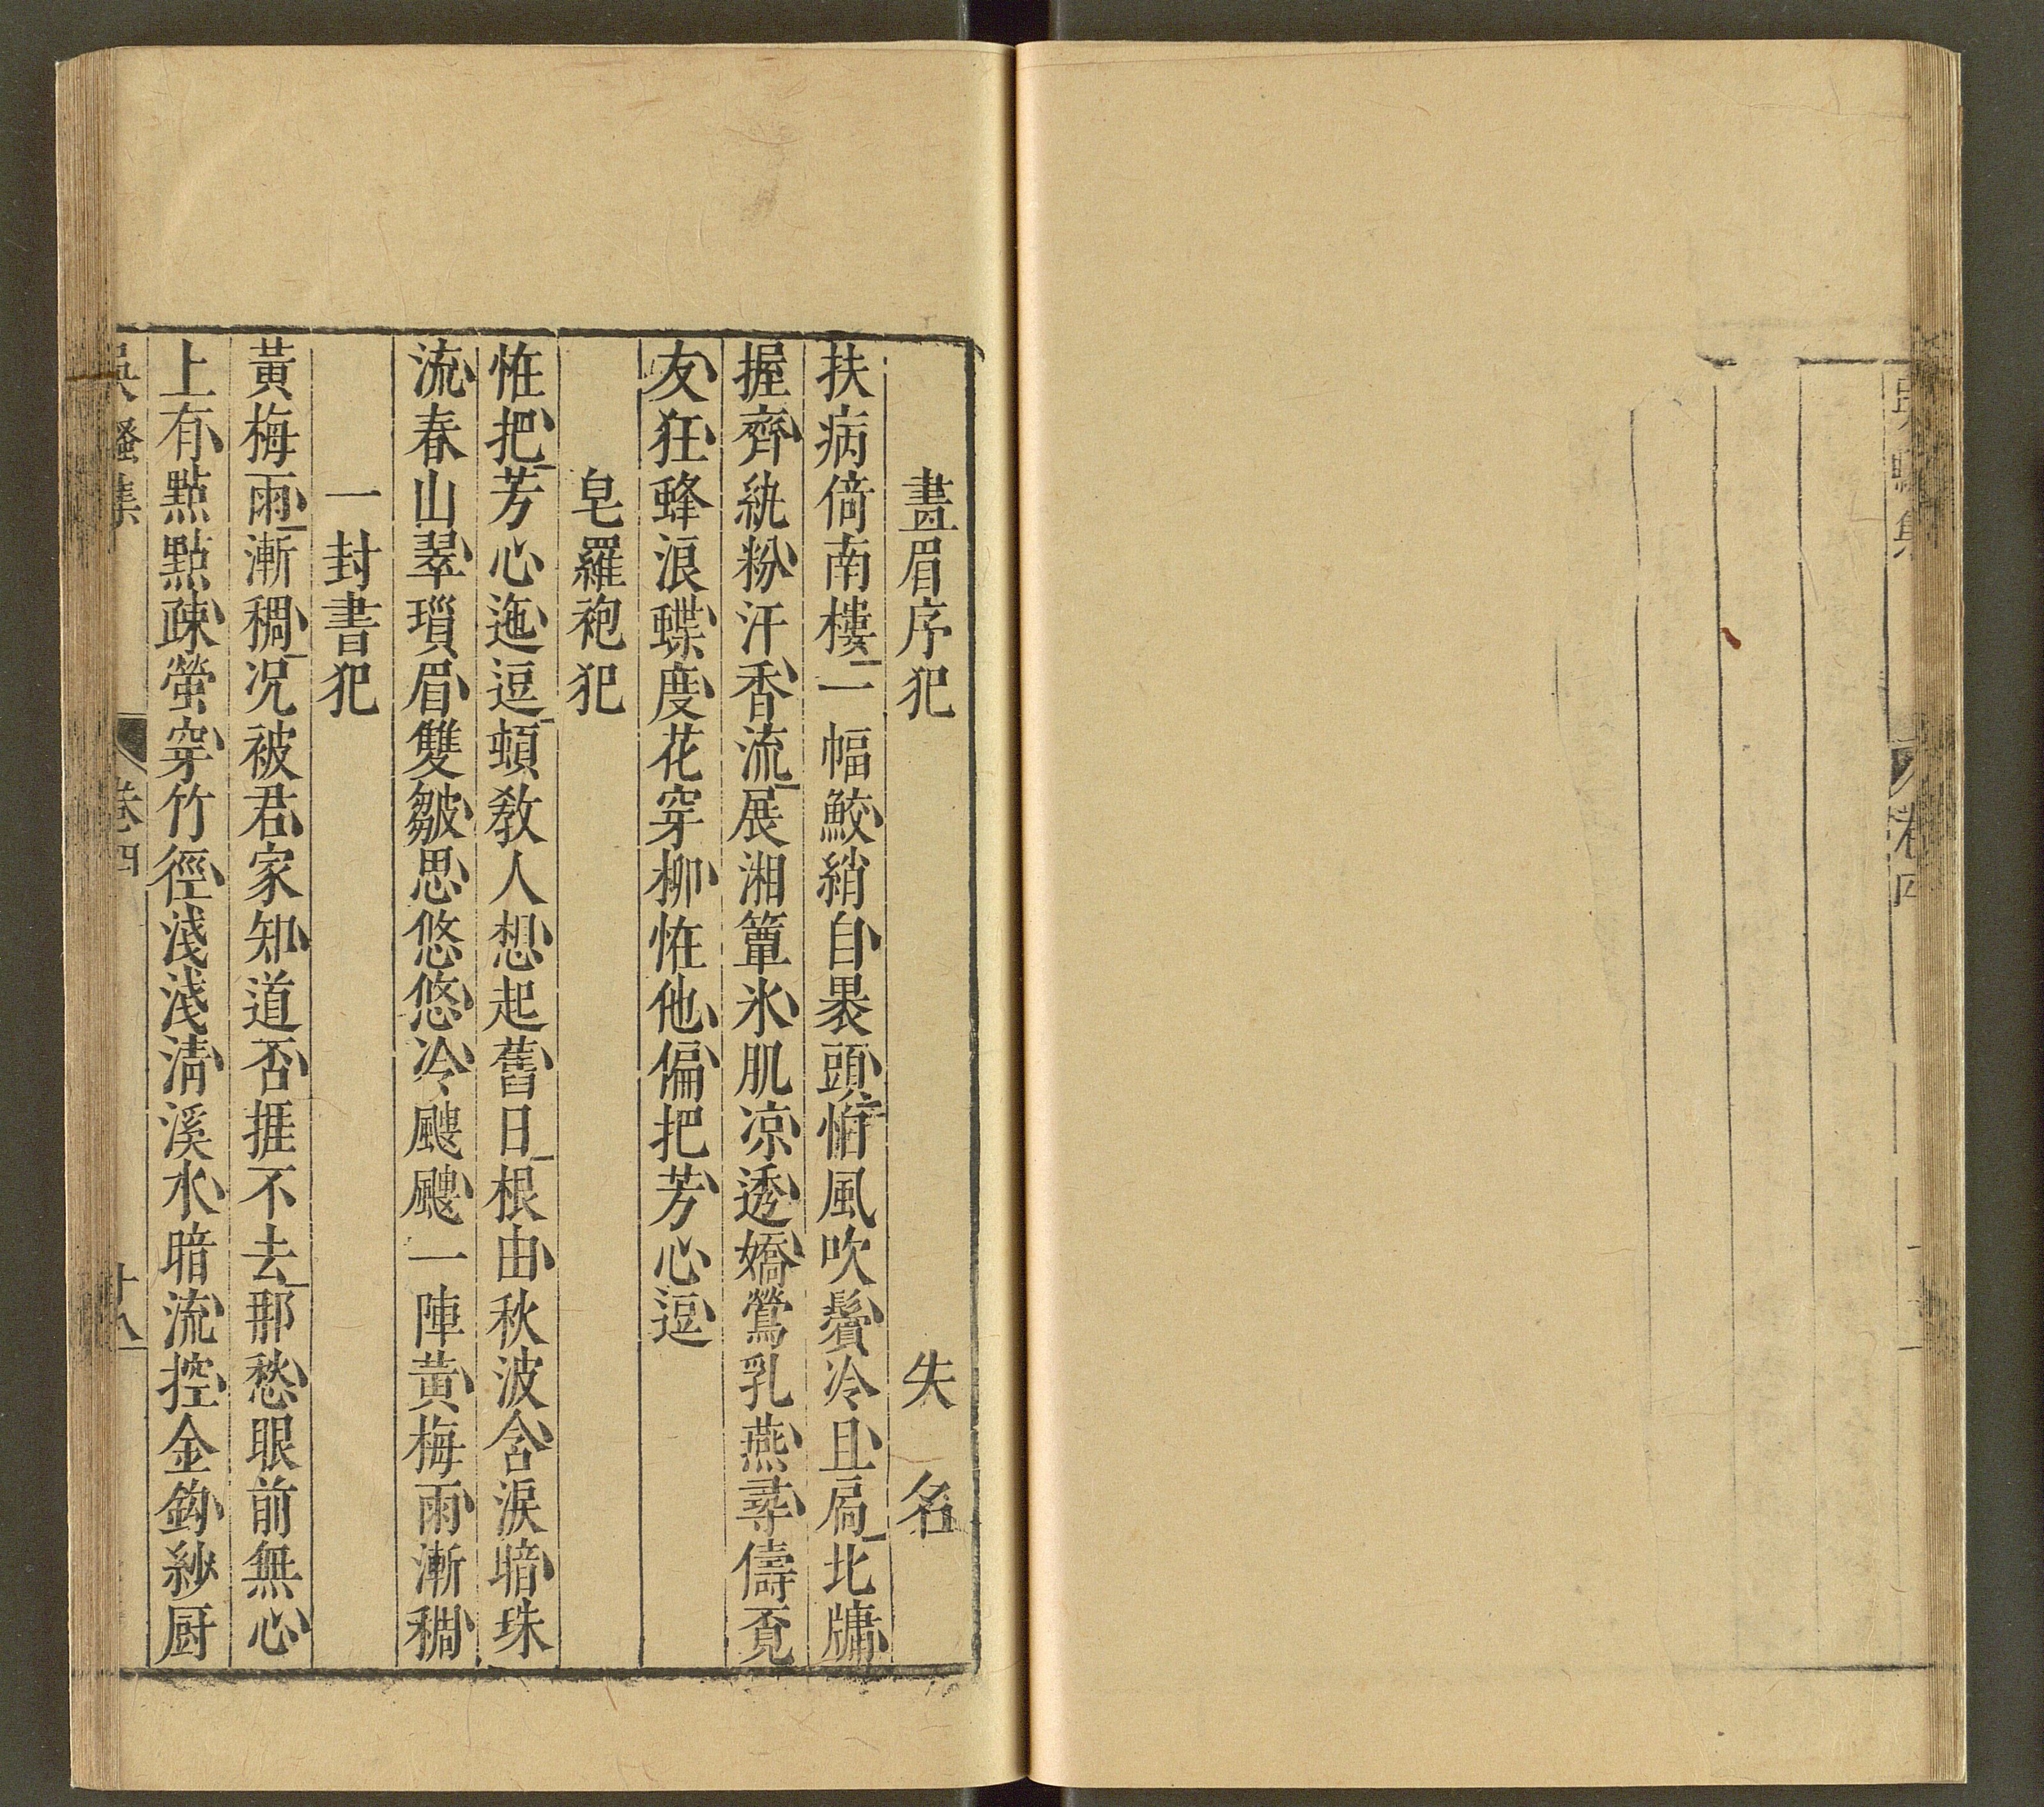 吳騷集　卷四
畫眉序犯　失名
扶病倚南樓一幅鮫綃自裹頭怕風吹鬢冷且扃北牖
握齊紈粉汗香流展湘簟氷肌凉透嬌鶯乳燕尋儔覔
友狂蜂浪蝶度花穿柳恠他偏把芳心逗
皂羅袍犯
恠把芳心迤逗頓教人想起舊日根由秋波含淚暗珠
流春山翠瑣眉雙皺思悠悠冷颼颼一陣黄梅雨漸稠
一封書犯
黃梅雨漸稠况被君家知道否捱不去那愁眼前無心
上有點點疎螢穿竹徑淺淺清溪水暗流控金鈎紗厨
吳騷集　卷四　廿八